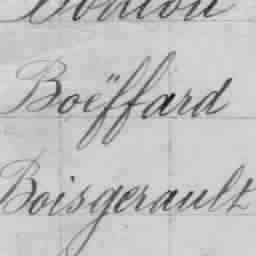 Boëffard
Boisgerault